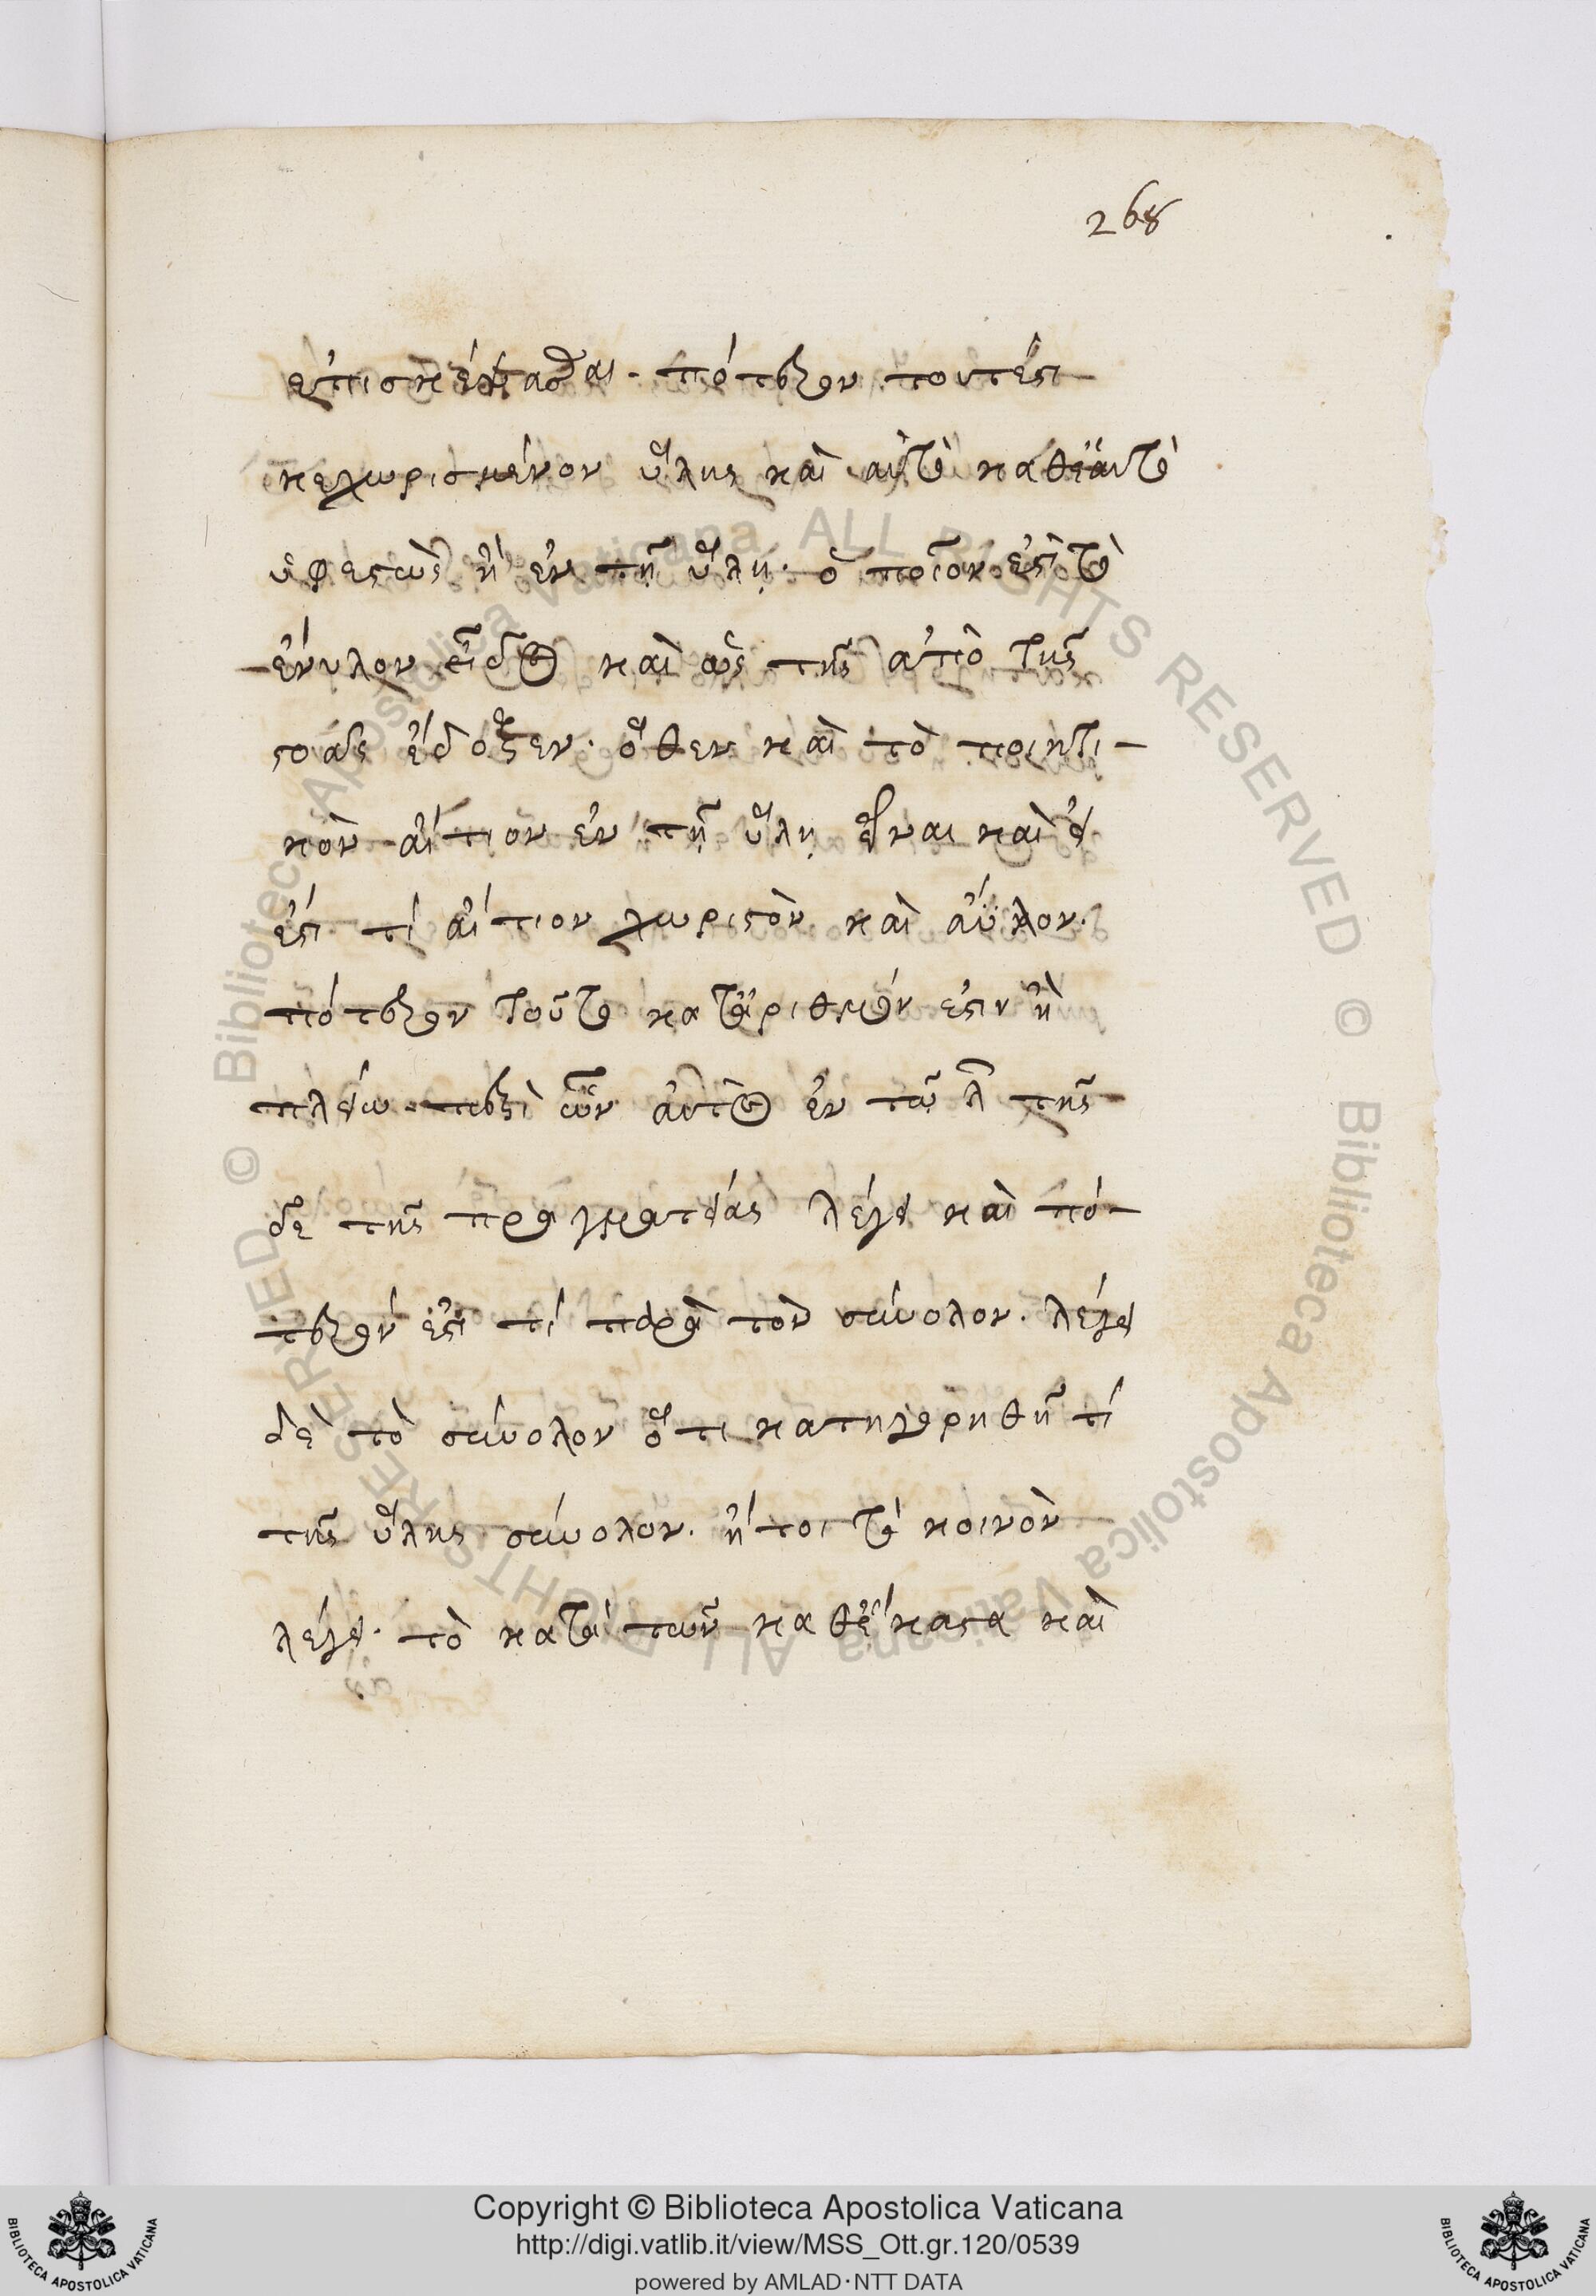 268
ἐπισκέψασθαι· πότερον τουτέστι
κεχωρισμένον ὕλης καὶ αὐτὸ καθ' ἑαυτὸ
ὑφεστὼς ἢ ἐν τῇ ὕλῃ· ὁποῖον ἐστὶ τὸ
ἔνυλον εἶδος καὶ ὡς τῆς ἀπὸ τῆς
στοᾶς ἔδοξεν· ὅθεν καὶ τὸ ποιητι-
κὸν αἴτιον ἐν τῇ ὕλῃ εἶναι καὶ εἰ
ἔστι τί αἴτιον χωριστὸν καὶ ἄϋλον·
πότερον τοῦτο κατ' ἀριθμόν ἐστιν ἢ
πλείω· περὶ ὧν αὐτὸς ἐν τῷ λ τῆς
δε τῆς πραγματείας λέγει καὶ πό-
τερόν ἐστι τί παρὰ τὸν σύνολον· λέγει
δὲ τὸ σύνολον ὅτι κατηγορηθῇ τί
τῆς ὕλης σύνολον· ἤτοι τὸ κοινὸν
λέγει· τὸ κατὰ τῶν καθ' ἕκαστα καὶ
Copyright © Biblioteca Apostolica Vaticana
http://digi.vatlib.it/view/MSS_Ott.gr.120/0539
powered by AMLAD·NTT DATA
BIBLIOTECA APOSTOLICA VATICANA
BIBLIOTECA APOSTOLICA VATICANA
© Biblioteca Apostolica Vaticana ALL RIGHTS RESERVED
© Biblioteca Apostolica Vaticana ALL RIGHTS RESERVED